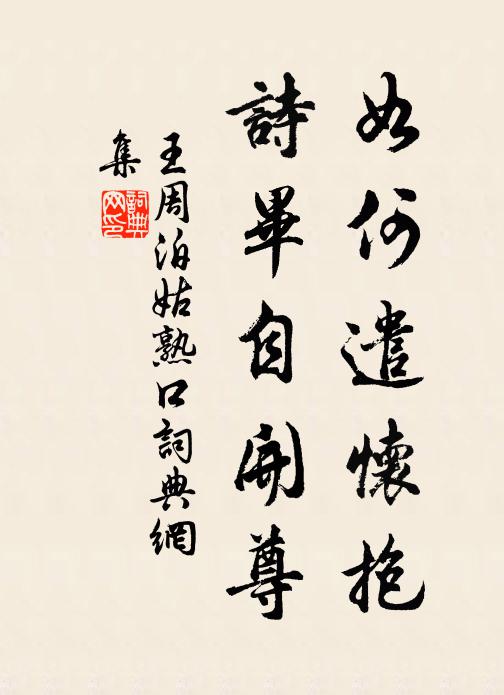 如何遣懷抱
詩畢自開尊
王周泊姑熟口詞典網
集
詞典
网印